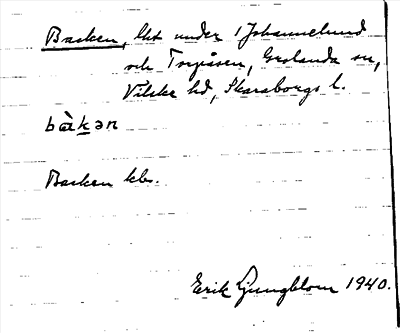 Backen, lht under 1 Johannelund
och Torpåsen, Grolanda sn,
Vilske hd, Skaraborgs l.
bàkən
Backen kbr.
Erik Ljungblom 1940.